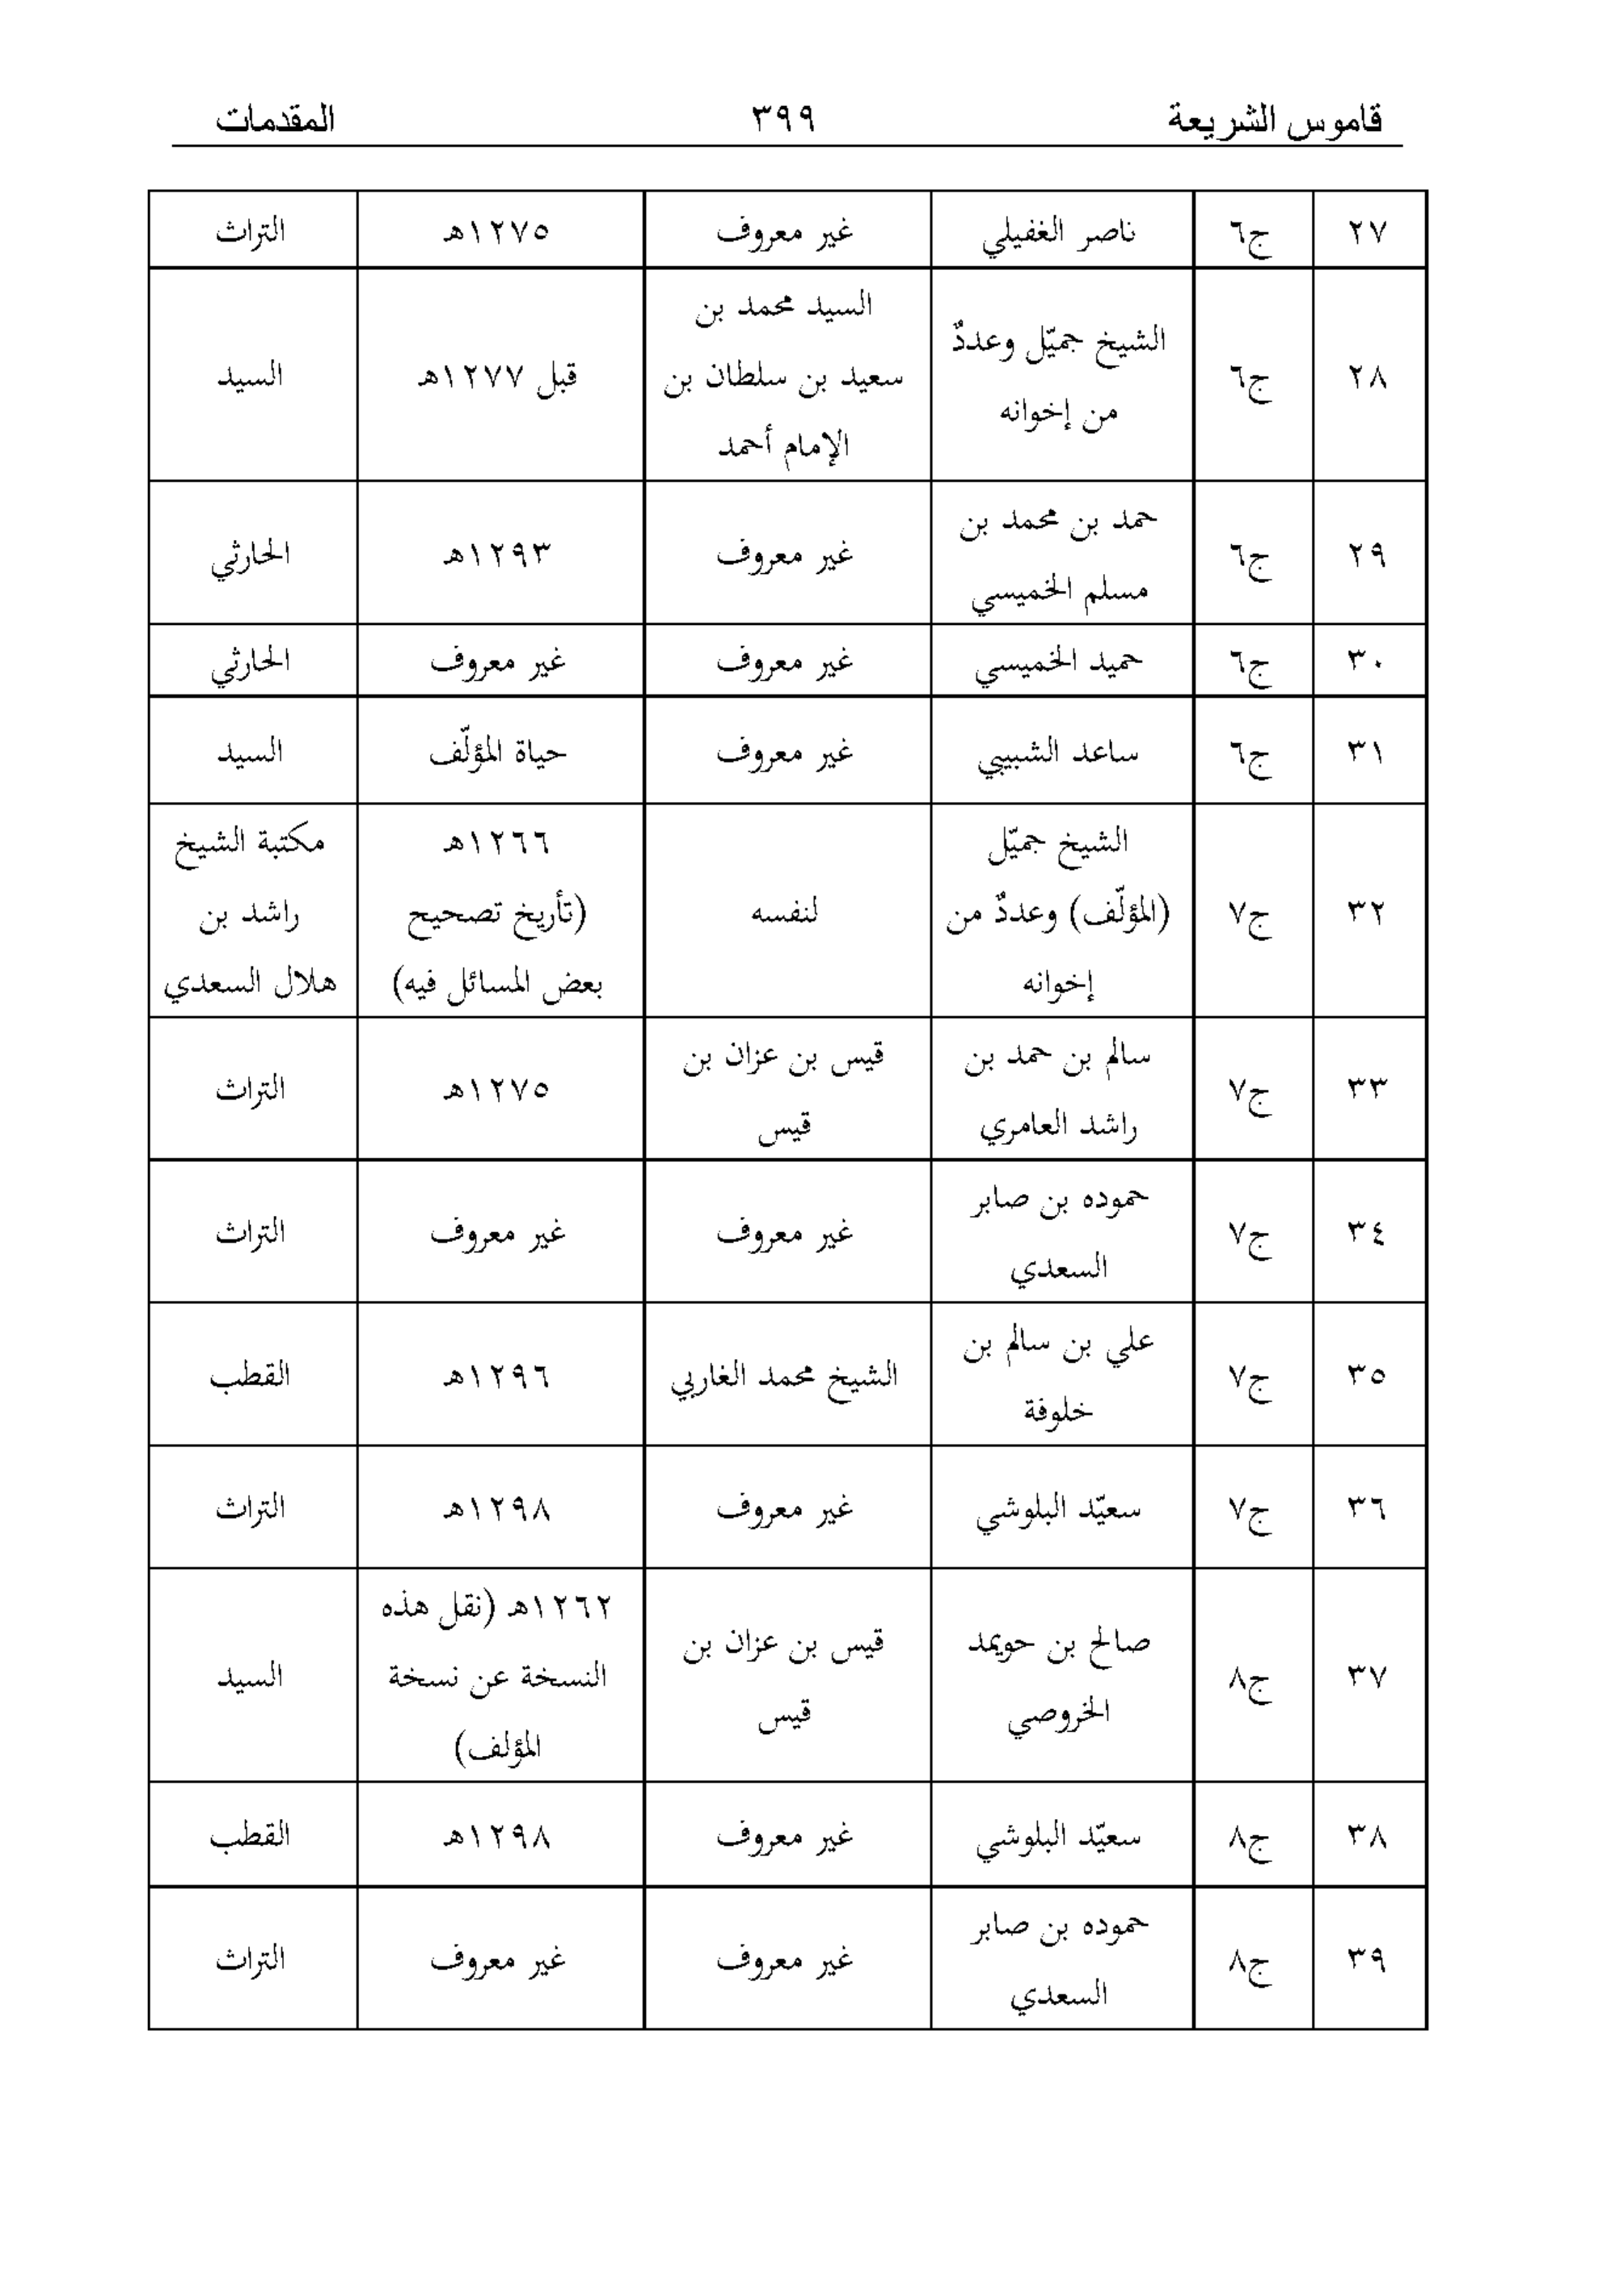 قاموس الشريعة ٣٩٩ المقدمات
٢٧ ج٦ ناصر الغفيلي غير معروف ١٢٧٥هـ التراث
٢٨ ج٦ الشيخ جميّل وعددٌ من إخوانه السيد محمد بن سعيد بن سلطان بن الإمام أحمد قبل ١٢٧٧هـ السيد
٢٩ ج٦ حمد بن محمد بن مسلم الخميسي غير معروف ١٢٩٣هـ الحارثي
٣٠ ج٦ حميد الخميسي غير معروف غير معروف الحارثي
٣١ ج٦ ساعد الشبيبي غير معروف حياة المؤلّف السيد
٣٢ ج٧ الشيخ جميّل (المؤلّف) وعددٌ من إخوانه لنفسه ١٢٦٦هـ (تأريخ تصحيح بعض المسائل فيه) مكتبة الشيخ راشد بن هلال السعدي
٣٣ ج٧ سالم بن حمد بن راشد العامري قيس بن عزان بن قيس ١٢٧٥هـ التراث
٣٤ ج٧ حموده بن صابر السعدي غير معروف غير معروف التراث
٣٥ ج٧ علي بن سالم بن خلوفة الشيخ محمد الغاربي ١٢٩٦هـ القطب
٣٦ ج٧ سعيّد البلوشي غير معروف ١٢٩٨هـ التراث
٣٧ ج٨ صالح بن حويمد الخروصي قيس بن عزان بن قيس ١٢٦٢هـ (نقل هذه النسخة عن نسخة المؤلف) السيد
٣٨ ج٨ سعيّد البلوشي غير معروف ١٢٩٨هـ القطب
٣٩ ج٨ حموده بن صابر السعدي غير معروف غير معروف التراث